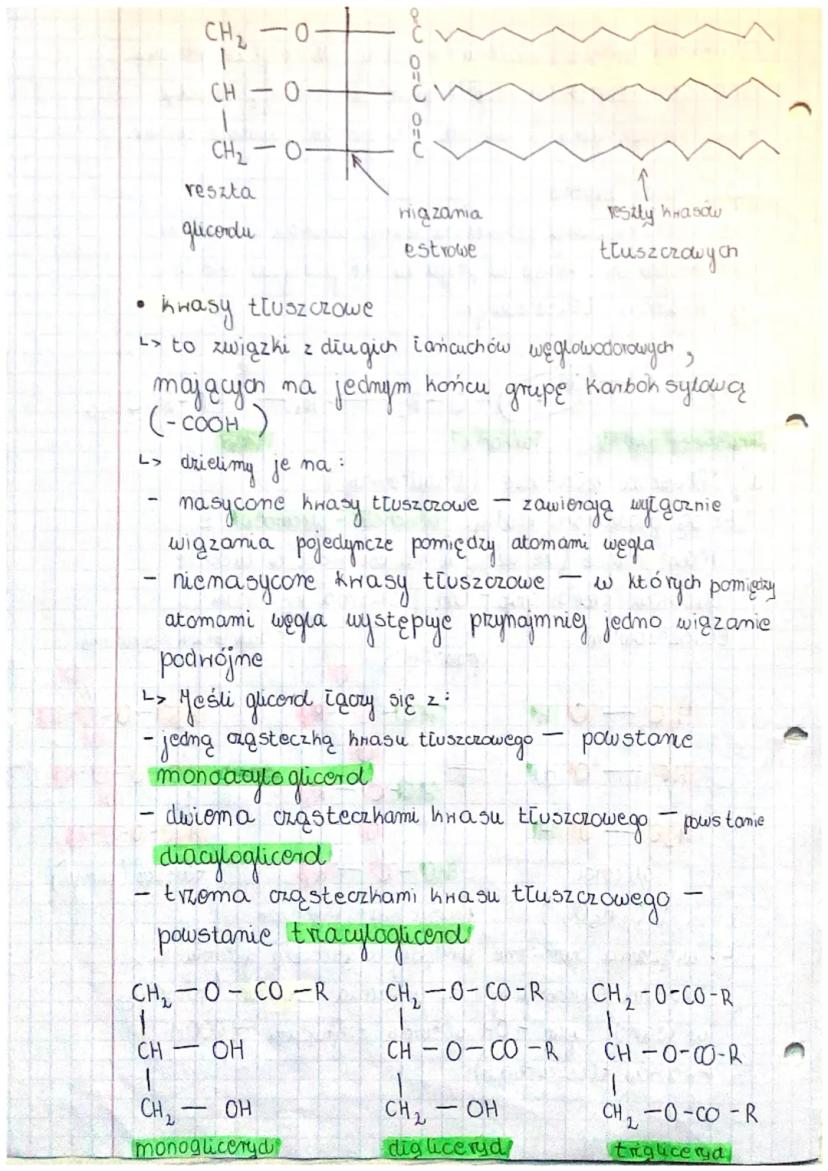 CH₂ — O — C
O
||
CH — O — C
O
||
CH₂ — O — C
reszta
glicerolu
wiązania
estrowe
reszty kwasów
tłuszczowych
• kwasy tłuszczowe
↳ to związki z długich łańcuchów węglowodorowych,
mających na jednym końcu grupę karboksylową
(-COOH)
↳ dzielimy je na:
- nasycone kwasy tłuszczowe — zawierają wyłącznie
wiązania pojedyncze pomiędzy atomami węgla
- nienasycone kwasy tłuszczowe — w których pomiędzy
atomami węgla występuje przynajmniej jedno wiązanie
podwójne
↳ Jeśli glicerol łączy się z:
- jedną cząsteczką kwasu tłuszczowego — powstanie
monoacyloglicerol
- dwiema cząsteczkami kwasu tłuszczowego — powstanie
diacyloglicerol
- trzema cząsteczkami kwasu tłuszczowego —
powstanie triacyloglicerol
CH₂ — O — CO — R CH₂ — O — CO — R CH₂ — O — CO — R
CH — OH CH — O — CO — R CH — O — CO — R
CH₂ — OH CH₂ — OH CH₂ — O — CO — R
monogliceryd digliceryd trigliceryd